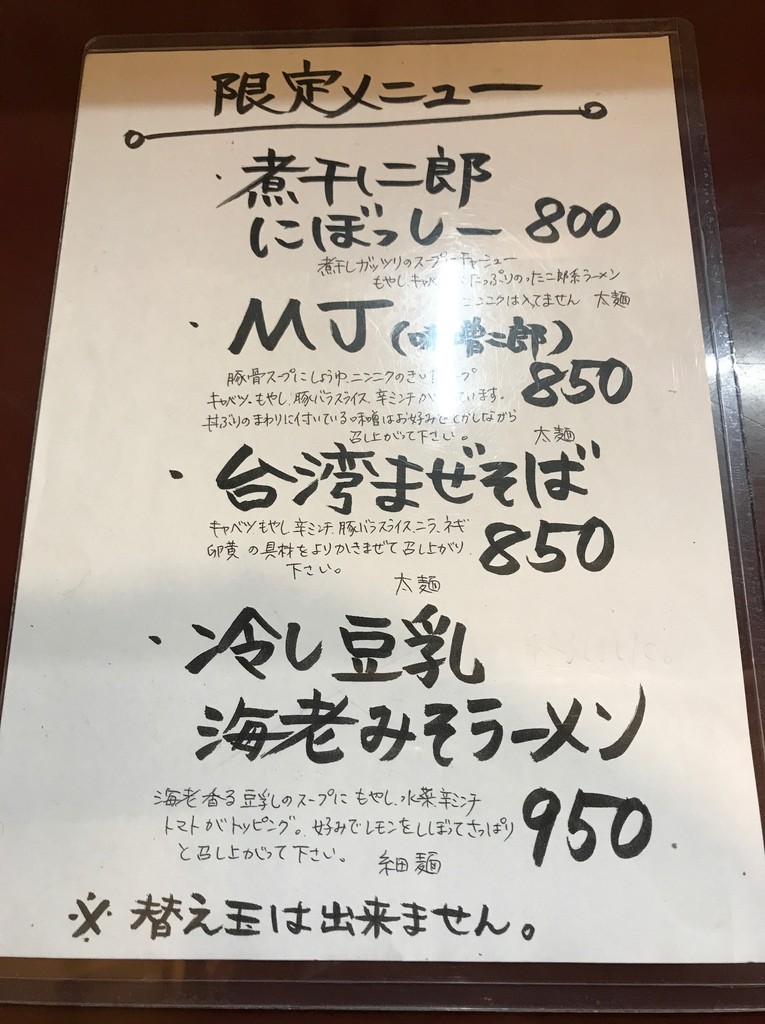 限定メニュー
・煮干し二郎
にぼっしー 800
煮干しガッツリのスープにチャーシュー
もやし、キャベ たっぷりのった二郎系ラーメン
ニンニクは入てません 太麺
・MJ(味噌二郎)
豚骨スープにしょうゆ、ニンニクのきい プ 850
キャベツ、もやし、豚バラスライス、辛ミンチが います。
丼ぶりのまわりに付いている味噌はお好みで とかしながら
召し上がって下さい。 太麺
・台湾まぜそば
キャベツもやし、辛ミンチ、豚バラスライス、ニラ、ネギ
卵黄の具材をよりかきまぜて召し上がり 850
下さい。
太麺
・冷し豆乳
海老みそラーメン
海老香る豆乳のスープにもやし、水菜、辛ミンチ
トマトがトッピング。好みでレモンをしぼってさっぱり 950
と召し上がって下さい。 細麺
※替え玉は出来ません。